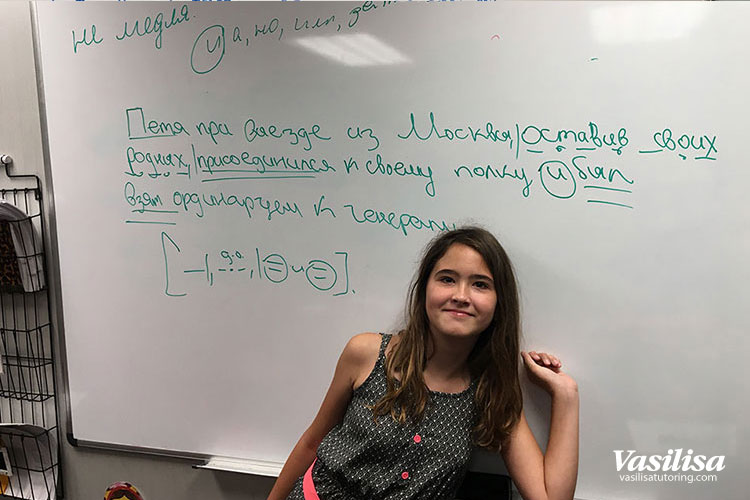 не медля.
и а, но, или,
Петя при выезде из Москвы, оставив своих
родных, присоединился к своему полку и был
взят ординарцем к генералу
[–|, д.о., |= и =].
Vasilisa
vasilisatutoring.com